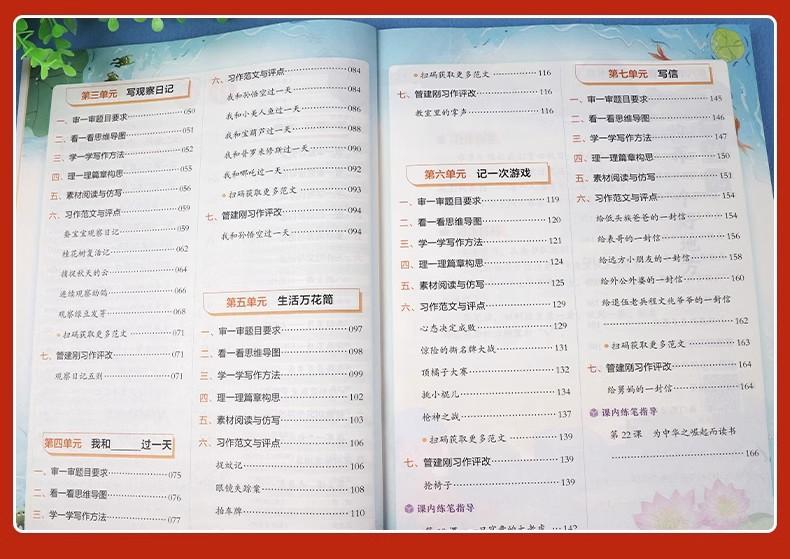 第三单元 写观察日记
一、审一审题目要求 050
二、看一看思维导图 051
三、学一学写作方法 052
四、理一理篇章构思 055
五、素材阅读与仿写 056
六、习作范文与评点 059
蚕宝宝观察日记 059
桂花树复活记 062
捕捉秋天的云 064
连续观察动鸽 066
观察绿豆发芽 068
扫码获取更多范文 071
七、管建刚习作评改 071
观察日记五则 071
第四单元 我和____过一天
一、审一审题目要求 075
二、看一看思维导图 076
三、学一学写作方法 077
六、习作范文与评点 084
我和孙悟空过一天 084
我和小美人鱼过一天 086
我和宝葫芦过一天 088
我和普罗米修斯过一天 090
我和哪吒过一天 092
扫码获取更多范文 093
七、管建刚习作评改 094
我和孙悟空过一天 094
第五单元 生活万花筒
一、审一审题目要求 097
二、看一看思维导图 098
三、学一学写作方法 099
四、理一理篇章构思 102
五、素材阅读与仿写 103
六、习作范文与评点 106
捉蚊记 106
眼镜失踪案 108
拍冬牌 110
扫码获取更多范文 116
七、管建刚习作评改 116
教室里的掌声 116
第六单元 记一次游戏
一、审一审题目要求 119
二、看一看思维导图 120
三、学一学写作方法 121
四、理一理篇章构思 124
五、素材阅读与仿写 125
六、习作范文与评点 129
心态决定成败 129
惊险的撕名牌大战 131
顶橘子大赛 132
挑小棍儿 134
枪神之战 137
扫码获取更多范文 139
七、管建刚习作评改 139
抢椅子 139
课内练笔指导
142
第七单元 写信
一、审一审题目要求 145
二、看一看思维导图 146
三、学一学写作方法 147
四、理一理篇章构思 150
五、素材阅读与仿写 151
六、习作范文与评点 154
给低头族爸爸的一封信 154
给表哥的一封信 156
给远方小朋友的一封信 158
给外公外婆的一封信 160
给退伍老兵程文兆爷爷的一封信
162
扫码获取更多范文 163
七、管建刚习作评改 164
给舅妈的一封信 164
课内练笔指导
第22课 为中华之崛起而读书
166